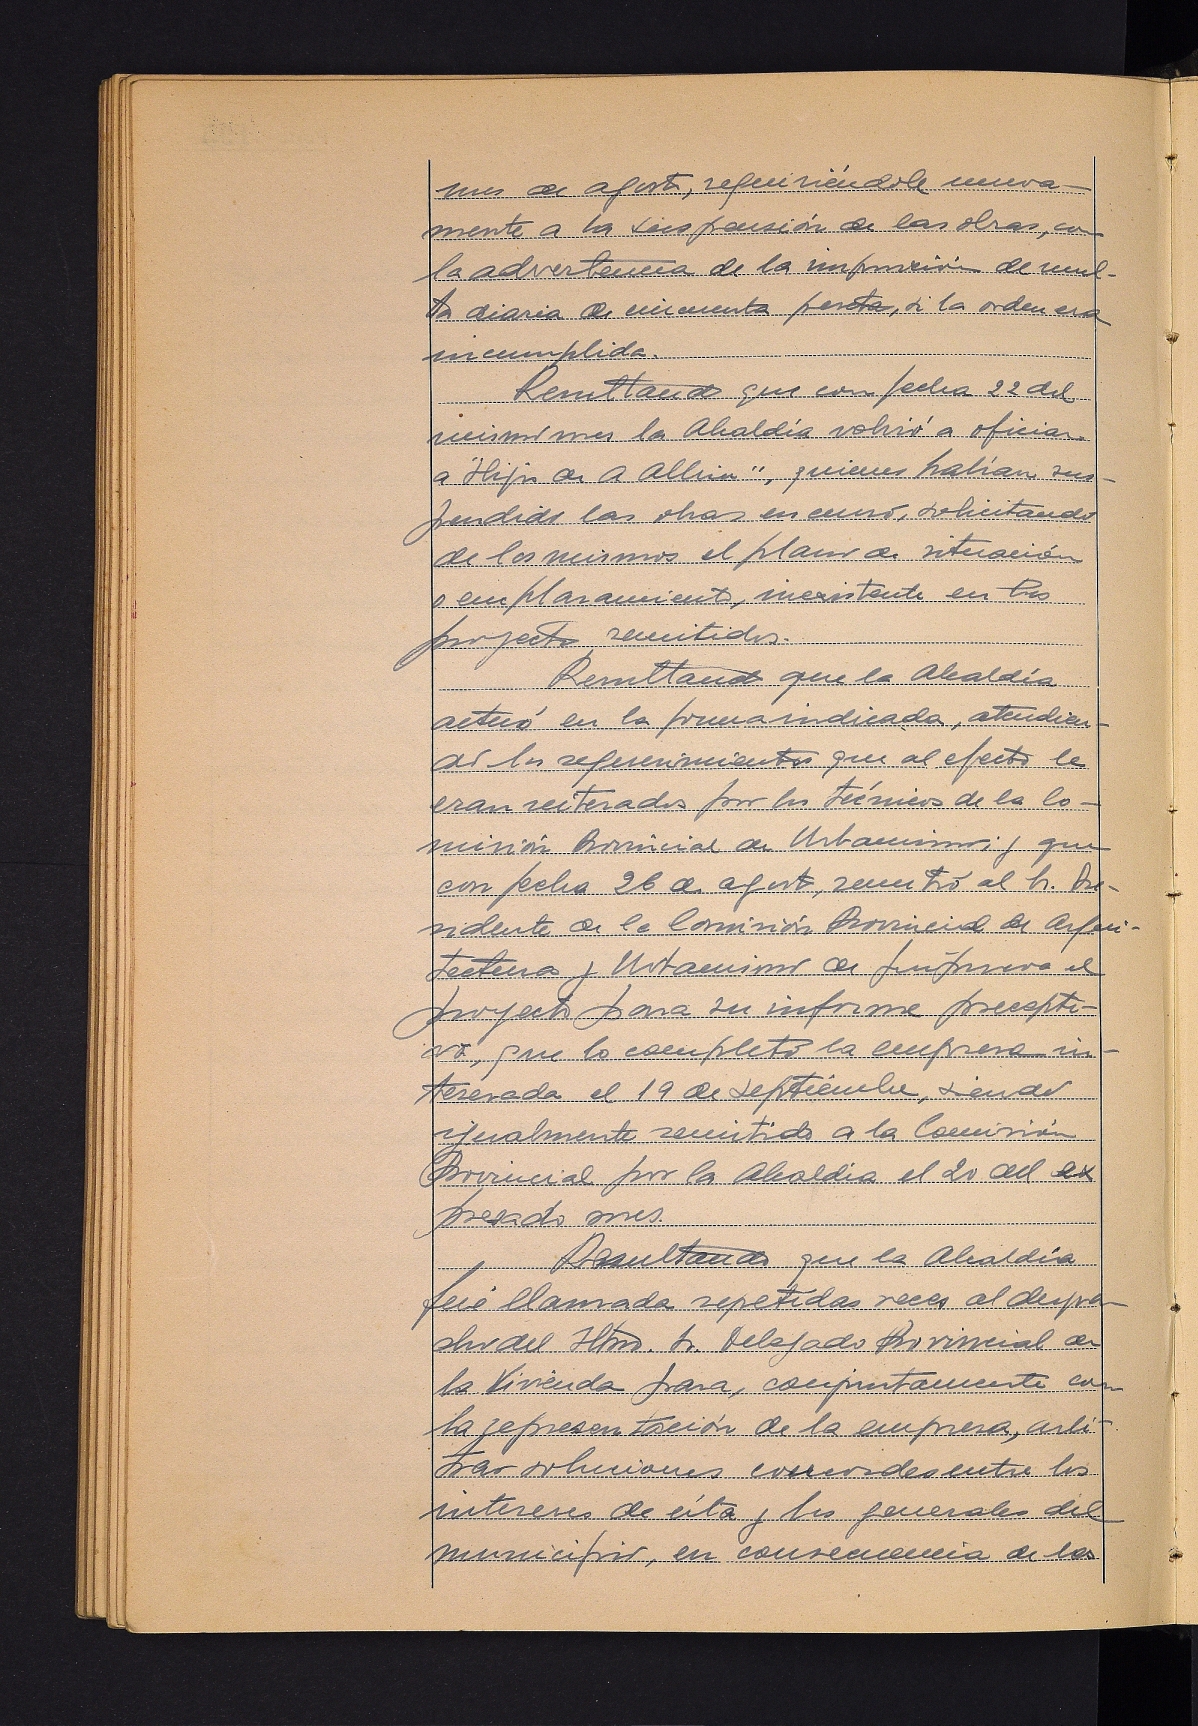 mes de agosto, requiriéndole nueva-
mente a la suspensión de las obras, con
la advertencia de la imposición de mul-
ta diaria de cincuenta pesetas, si la orden era
incumplida.
Resultando que con fecha 22 del
mismo mes la Alcaldía volvió a oficiar
a "Hijos de A", quienes habían sus-
pendido las obras en curso, solicitando
de los mismos el plano de situación
o emplazamiento, inexistente en los
proyectos remitidos.
Resultando que la Alcaldía
actuó en la forma indicada, atendien-
do los requerimientos que al efecto le
eran reiterados por los técnicos de la Co-
misión Provincial de Urbanismo; y que
con fecha 26 de agosto, remitió al Sr. Pre-
sidente de la Comisión Provincial de Arqui-
tectura y Urbanismo de Guipúzcoa el
proyecto para su informe precepti-
vo, que lo completó la empresa in-
teresada el 19 de septiembre, siendo
igualmente remitido a la Comisión
Provincial por la Alcaldía el 20 del ex
presado mes.
Resultando que la Alcaldía
fué llamada repetidas veces al despa-
cho del Iltmo. Sr. Delegado Provincial de
la Vivienda para, conjuntamente con
la representación de la empresa, arbi-
trar soluciones concordes entre los
intereses de ésta y los generales del
municipio, en consecuencia de las